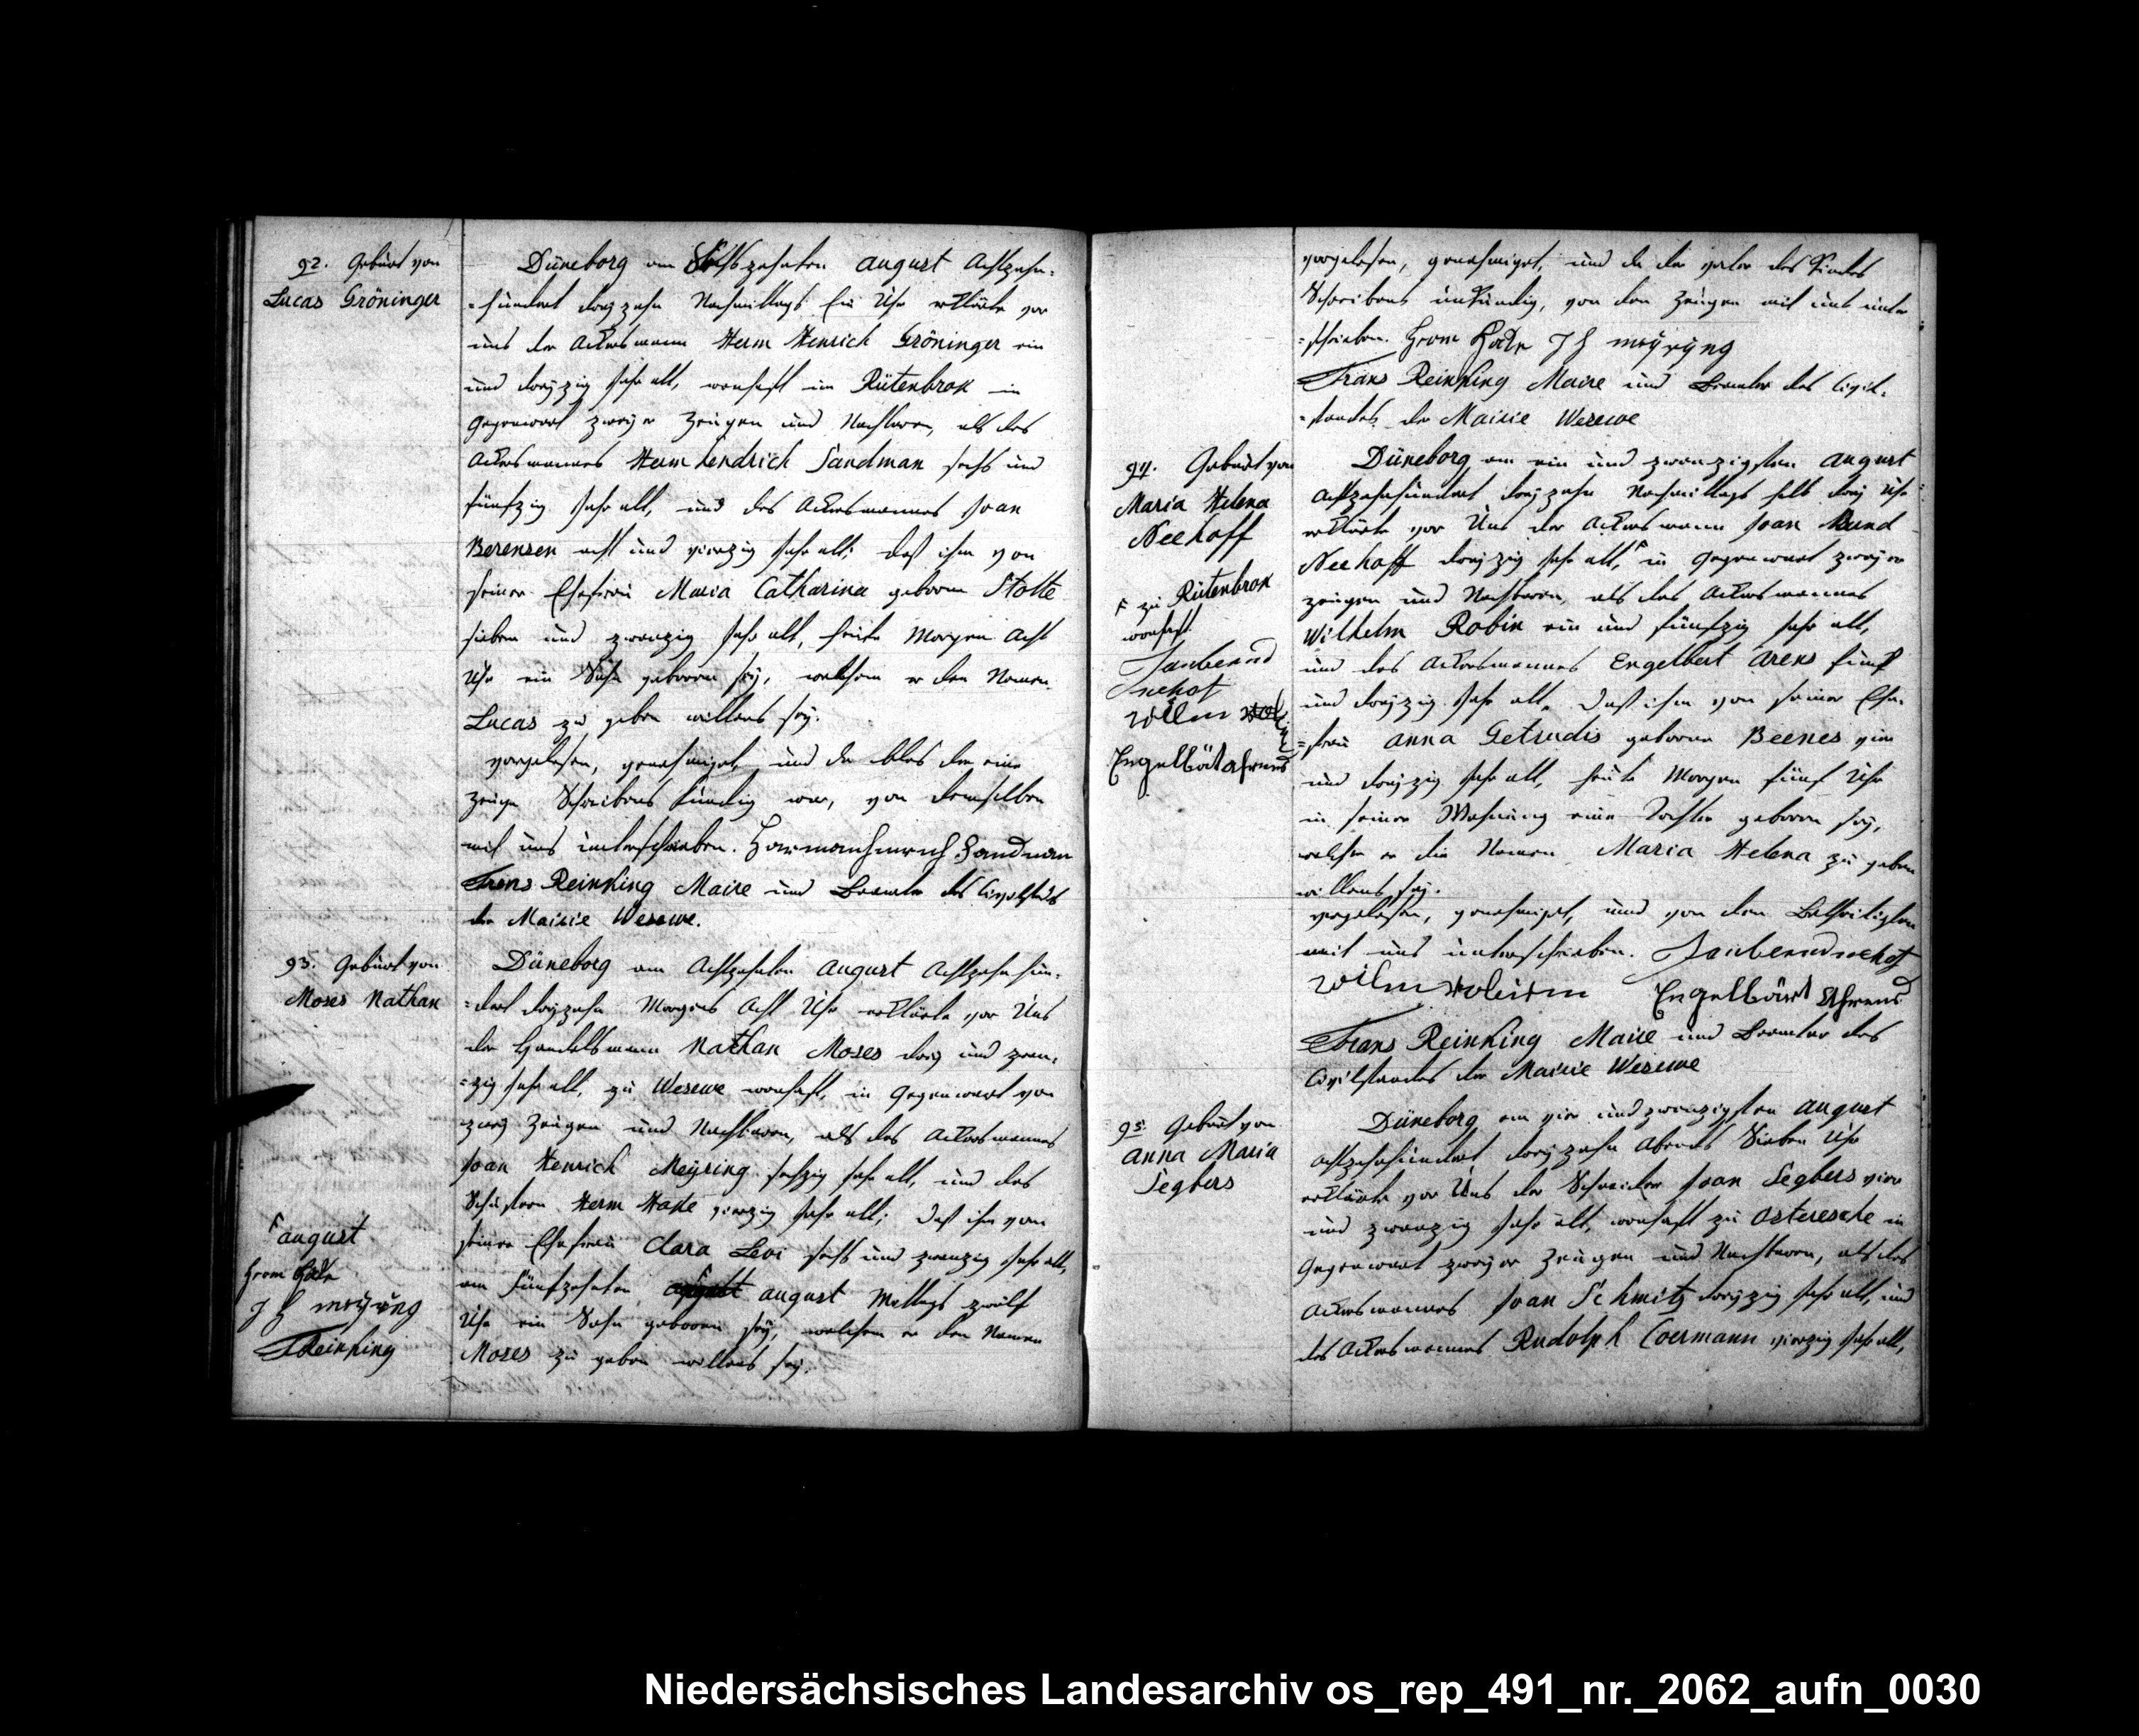 92. Geburt von
Lucas Gröninger
Düneborg am Sechszehnten august Achtzehn-
-hundert dreyzehn Nachmittags Ein Uhr erklärte vor
uns der Ackersmann Herm Henrich Gröninger ein
und dreyzig Jahr alt, wonhaft im Rütenbrok in
Gegenwart zweyer Zeugen und Nachbaren, als des
Ackersmannes Herm hendrich Sandman sechs und
fünfzig Jahr alt, und des Ackersmannes Joan
Berensen acht und vierzig Jahr alt; daß ihm von
seiner Ehefrau Maria Catharina geboren Stolte
sieben und zwanzig Jahr alt, heute Morgen Acht
Uhr ein Sohn geboren sey, welchem er den Namen
Lucas zu geben willens sey.
vorgelesen, genehmiget, und da blos der eine
Zeuge Schreibens kundig war, von demselben
mit uns unterschrieben. Harmanhinrich Sandman
Frans Reinking Maire und Beamter des Civilstands
der Mairie Wesewe.
93. Geburt von
Moses Nathan
Düneborg am Achtzehnten August Achtzehnhun-
-dert dreyzehn Morgens Acht Uhr erklärte vor Uns
der Handelsmann Nathan Moses drey und zwan-
-zig Jahr alt, zu Wesewe wonhaft, in Gegenwart von
zwey Zeugen und Nachbaren, als des Ackersmannes
Joan Henrich Meÿring sechzig Jahr alt, und des
Schusters Herm Hake vierzig Jahr alt; daß ihm von
seiner Ehefrau Clara Levi sechs und zwanzig Jahr alt,
am fünfzehnten august Mittags zwölf
Uhr ein Sohn geboren sey, welchem er den Namen
Moses zu geben willens sey.
august
Herm Hake
J H meÿring
FReinking
vorgelesen, genehmiget, und da der vater des Kindes
Schreibens unkundig, von den Zeugen mit uns unter
-schrieben. Herm Hake J H meÿring
Frans Reinking Maire und Beamter des Civil-
-standes der Mairie Wesewe
94. Geburt von
Maria Helena
Neehoff
zu Rütenbrok
wonhaft
Janbernd
nehof
Wilm
Engelbärt Ahrens
Düneborg am ein und zwanzigsten august
Achtzehnhundert dreyzehn Nachmittags halb drey Uhr
erklärte vor Uns der Ackersmann Joan Bernd
Neehoff dreyzig Jahr alt, in Gegenwart zweyer
zeugen und Nachbaren, als des Ackersmannes
Wilhelm Robin ein und fünfzig Jahr alt,
und des Ackersmannes Engelbert Arens fünf
und dreyzig Jahr alt, daß ihm von seiner Ehe-
-frau anna Getrudis geboren Beenes vier
und dreyzig Jahr alt, heute Morgen fünf Uhr
in seiner Wohnung eine Tochter geboren sey,
welcher er die Namen Maria Helena zu geben
willens sey.
vorgelesen, genehmiget, und von den Betheiligten
mit uns unterschrieben. Janbernd nehof
Wilm Engelbärt Ahrens
Frans Reinking Maire und Beamter des
Civilstandes der Mairie Wesewe
95. Geburt von
anna Maria
Segbers
Düneborg am vier und zwanzigsten august
achtzehnhundert dreyzehn Abends Sieben Uhr
erklärte vor Uns der Schneider Joan Segbers vier
und zwanzig Jahr alt, wonhaft zu Osteresche in
Gegenwart zweyer Zeugen und Nachbaren, als des
Ackersmannes Joan Schmitz dreyzig Jahr alt, und
des Ackersmannes Rudolph Coermann vierzig Jahr alt,
Niedersächsisches Landesarchiv os_rep_491_nr._2062_aufn_0030